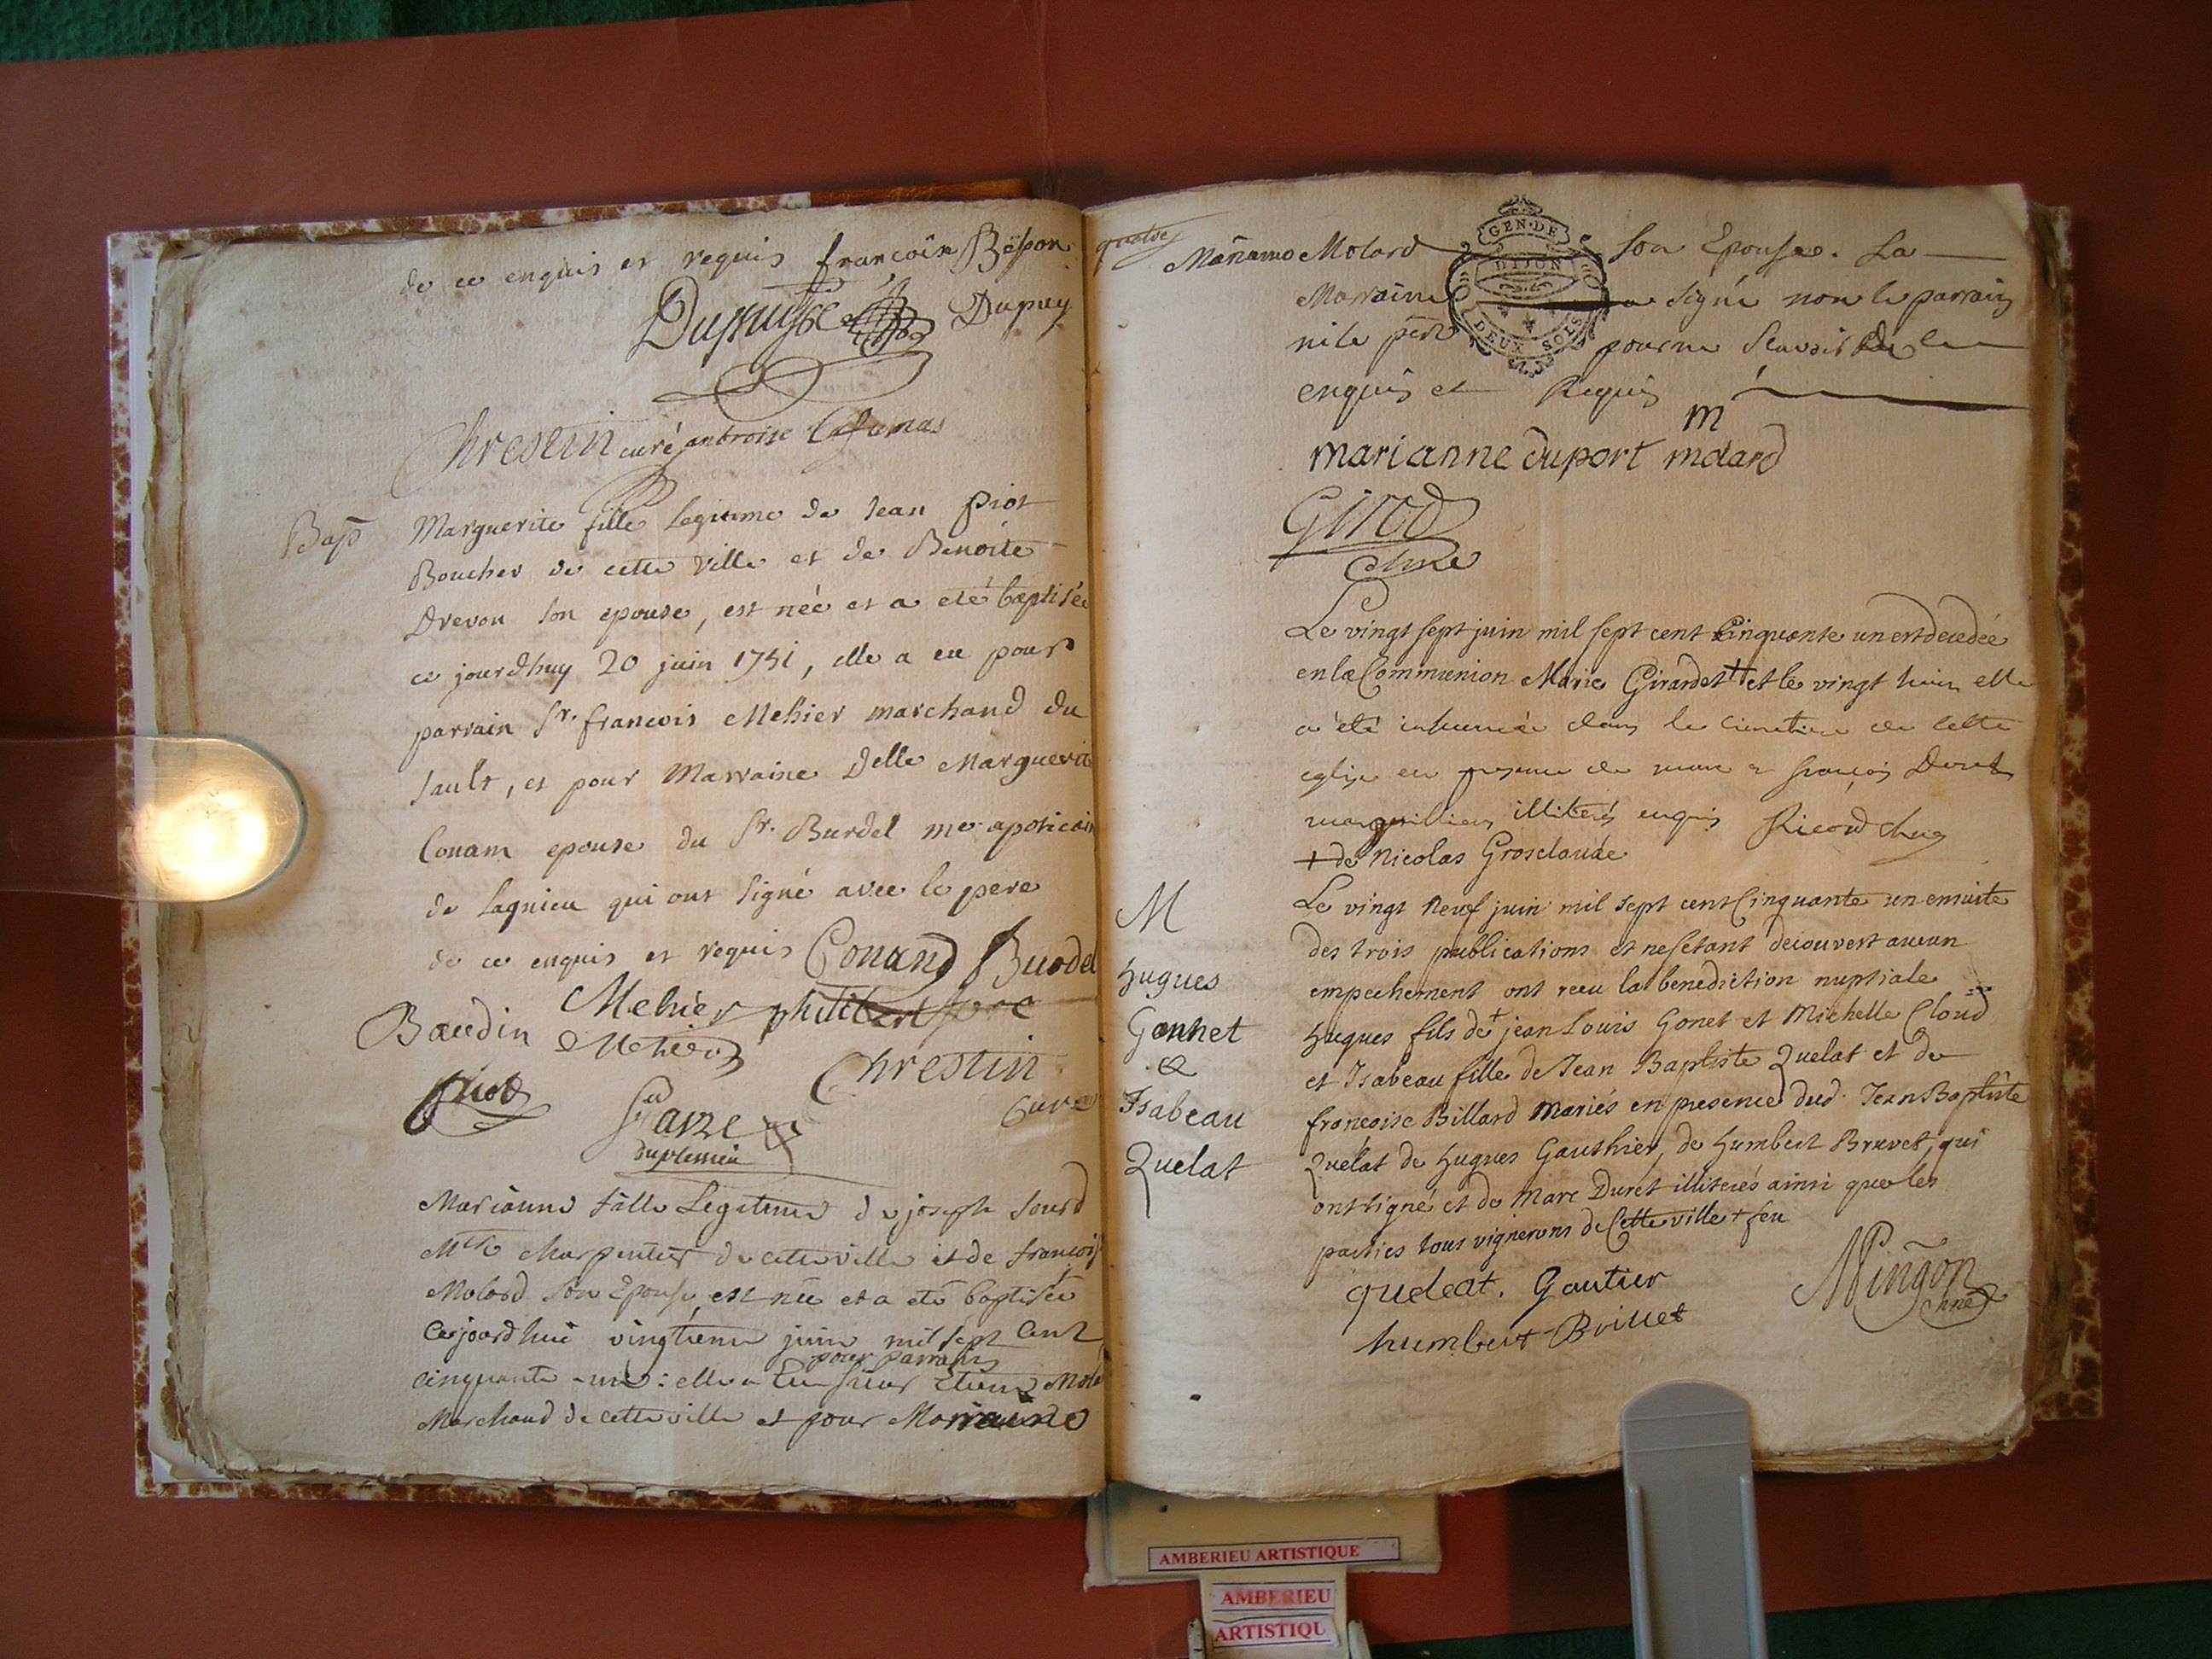 de ce enquis et requis francoise Bäpon
Dupuy
Chrestin curé ambroise Cafumas
Bap
Marguerite fille Legitime de Jean Piot
Boucher de cette ville et de Benoite
Drevon son epouse, est née et a eté baptisée
ce jourdhuy 20 juin 1751, elle a eu pour
parrain Sr. francois Mehier marchand du
Sault, et pour Marraine Delle Marguerite
Conam epouse du Sr. Burdel me apoticair
de Lagnieu qui ont signé avec le pere
de ce enquis et requis Conand Burdel
Baudin Mehier philibert
Mehier
Chrestin
Piot
Curé
Marianne fille Legitime de joseph Sourd
Mtre Charpentier de cette ville et de francoise
Molard son Epouse, est née et a eté baptisée
Cejourdhui vingtieme juin mil sept Cent
pour parrain
cinquante-une: elle a eu sieur Etienne Mola
Marchand de cette ville et pour Marraine
quatre
Marianne Molard son Epouse. La
GEN. DE
DIJON
DEUX SOLS
Marraine a signé non le parrain
ni le pere pour ne scavoir de ce
enquis et Requis
m
marianne duport molard
Girod
Le vingt sept juin mil sept cent cinquante un est decedée
en la Communion Marie Girardet + et le vingt huit elle
a été inhumée dans le cimetiere de cette
eglise en presence de marc et françois Duret
marguilliers illiterés enquis Ricord
+ de Nicolas Grosclaude
M
Hugues
Gonnet
&
Isabeau
Quelat
Le vingt Neuf juin mil sept cent Cinquante un ensuite
des trois publications et ne setant decouvert aucun
empechement ont receu la benediction nuptiale
Hugues fils de + jean Louis Gonet et Michelle Cloud
et Isabeau fille de Jean Baptiste Quelat et de
francoise Billard Mariés en presence dud. Jean Baptiste
Quelat de Hugues Gauthier, de Humbert Bruvet, qui
ont signé et de Marc Duret illiterés ainsi que les
parties tous vignerons de Cette ville + feu
queleat. Gautier
Mingon
humbert Brillet
AMBERIEU ARTISTIQUE
AMBERIEU
ARTISTIQU